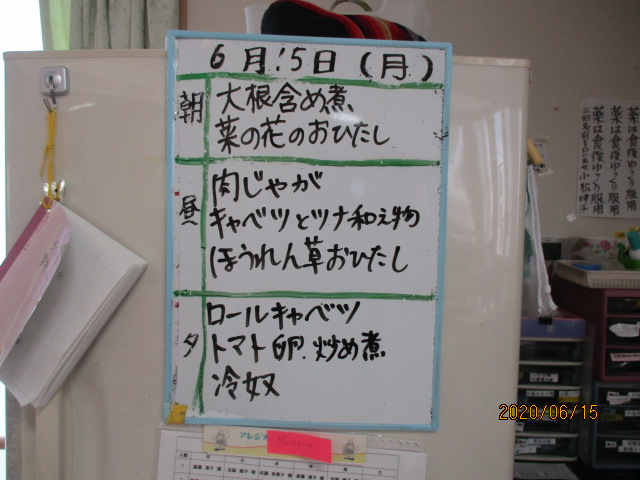 6月15日(月)
朝
大根含め煮
菜の花のおひたし
昼
肉じゃが
キャベツとツナ和え物
ほうれん草おひたし
夕
ロールキャベツ
トマト卵炒め煮
冷奴
薬は食後ゆっくり服用
薬は食後ゆっくり服用
2020/06/15